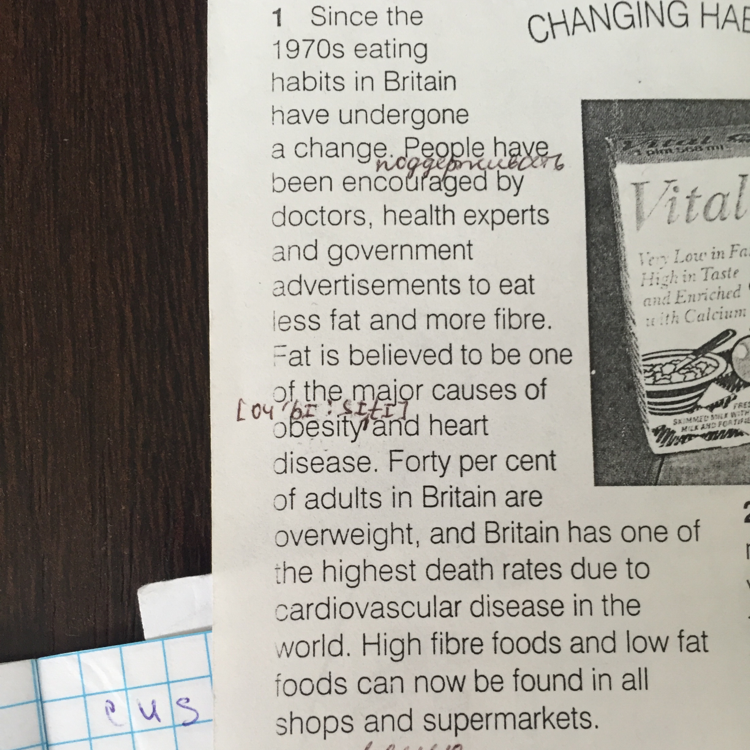 CHANGING HAB
1 Since the
1970s eating
habits in Britain
have undergone
a change. People have
поддерживать
been encouraged by
doctors, health experts
and government
advertisements to eat
less fat and more fibre.
Fat is believed to be one
of the major causes of
obesity and heart
disease. Forty per cent
of adults in Britain are
overweight, and Britain has one of
the highest death rates due to
cardiovascular disease in the
world. High fibre foods and low fat
foods can now be found in all
shops and supermarkets.
1 pint 568 ml
Vital
Very Low in Fa
High in Taste
and Enriched
with Calcium
SKIMMED MILK WITH
MILK AND
2
cus